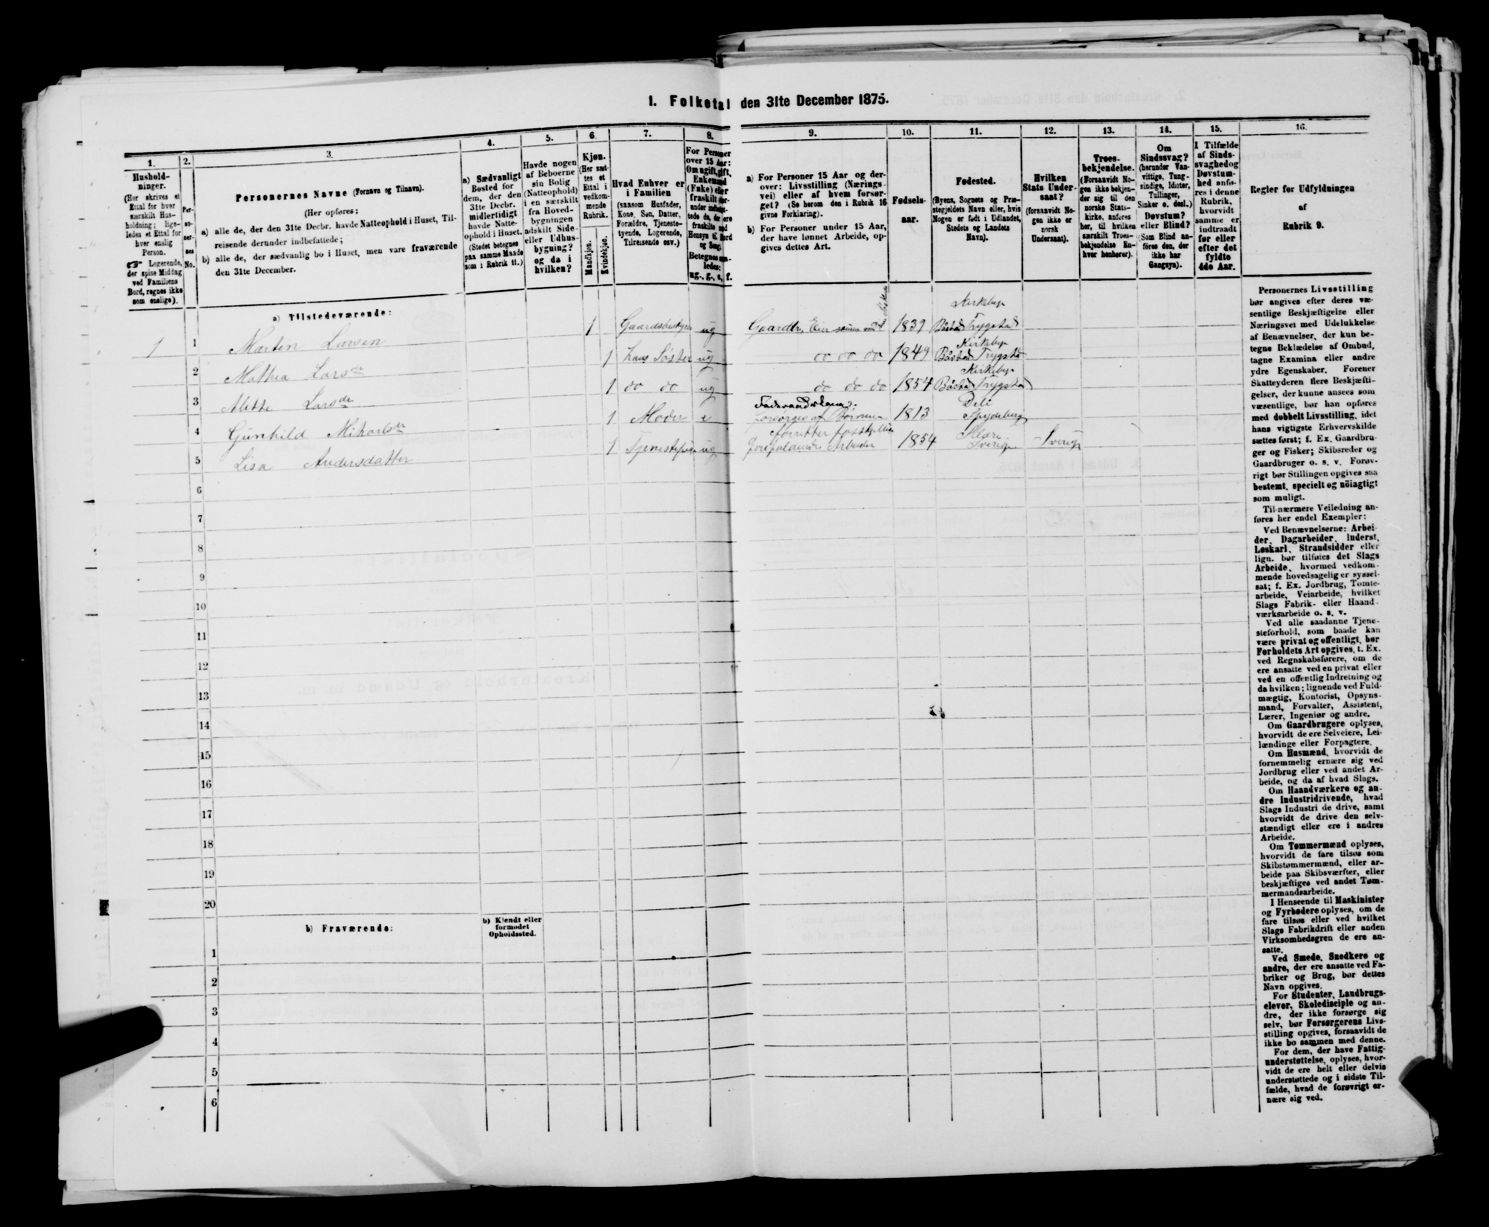 1. Folketal den 31te December 1875.
1.
Hushold-
ninger.
(Her skrives et
Ettal for hver
særskilt Hus-
holdning; lige-
ledes et Ettal for
hver enslig
Person.
Logerende,
der spise Middag
ved Familiens
Bord, regnes ikke
som enslige).
2.
Per-
so-
ner-
nes
No.
3.
Personernes Navne (Fornavn og Tilnavn).
(Her opføres:
a) alle de, der den 31te Decbr. havde Natteophold i Huset, Til-
reisende derunder indbefattede;
b) alle de, der sædvanlig bo i Huset, men vare fraværende
den 31te December.
4.
a) Sædvanligt
Bosted for
dem, der den
31te Decbr.
midlertidigt
havde Natte-
ophold i Huset.
(Stedet betegnes
paa samme Maade
som i Rubrik 11.)
5.
Havde nogen
af Beboerne
sin Bolig
(Natteophold)
i en særskilt
fra Hoved-
bygningen
adskilt Side-
eller Udhus-
bygning?
og da i
hvilken?
6.
Kjøn.
(Her sæt-
tes et
Ettal i
vedkom-
mende
Rubrik.
Mandkjøn.
Kvindekjøn.
7.
Hvad Enhver er
i Familien
(saasom Husfader,
Kone, Søn, Datter,
Forældre, Tjeneste-
tyende, Logerende,
Tilreisende osv.)
8.
For Personer
over 15 Aar:
Om ugift, gift,
Enkemand
(Enke) eller
fraskilt
Betegnes
ug., g., e., f.
9.
a) For Personer 15 Aar og der-
over: Livsstilling (Nærings-
vei) eller af hvem forsør-
get? (Se herom den i Rubrik 16
givne Forklaring).
b) For Personer under 15 Aar,
der have lønnet Arbeide, op-
gives dettes Art.
10.
Fødsels-
aar.
11.
Fødested.
(Byens, Sognets og Præ-
stegjeldets Navn eller, hvis
Nogen er født i Udlandet,
Stedets og Landets
Navn).
12.
Hvilken
Stats Under-
saat?
(forsaavidt No-
gen ikke er
norsk
Undersaat).
13.
Troes-
bekjendelse.
(Forsaavidt No-
gen ikke bekjen-
der sig til den
norske Stats-
kirke, anføres
her, til hvilken
særskilt Troes-
bekjendelse En-
hver henhører).
14.
Om
Sindssvag?
(herunder Van-
vittige, Tung-
sindige, Idioter,
Tullinger,
Sinker o. desl.)
Døvstum?
eller Blind?
(Som Blind an-
føres den, der
ikke har
Gangsyn).
15.
I Tilfælde
af Sinds-
svaghed og
Døvstum-
hed anfø-
res i denne
Rubrik,
hvorvidt
samme er
indtraadt
før eller
efter det
fyldte
4de Aar.
16.
Regler for Udfyldningen
af
Rubrik 9.
a) Tilstedeværende:
1 1 Martin Larsen 1 Gaardsbestyrer ug Gaardbr, 1839 Kirkeby Båstad Trygstad
2 Mathea Larsd 1 Hans Søster ug do do do 1849 Kirkeby Båstad Trygstad
3 Mette Larsdr 1 do do ug do do do 1854 Kirkeby Båstad Trygstad
4 Gunhild Mikarlsdr 1 Moder e Føderaads Forsørges af Børnene 1813 Spydeberg
5 Lisa Andersdatter 1 Tjenestepige ug forefaldende Arbeider 1854 Sverige Sverige
6
7
8
9
10
11
12
13
14
15
16
17
18
19
20
b) Fraværende:
b) Kjendt eller
formodet
Opholdssted.
1
2
3
4
5
6
Personernes Livsstilling
bør angives efter deres væ-
sentlige Beskjæftigelse eller
Næringsvei med Udelukkelse
af Benævnelser, der kun be-
tegne Beklædelse af Ombud,
tagne Examina eller andre
ydre Egenskaber. Forener
Skatteyderen flere Beskjæfti-
gelser, der kunne ansees som
væsentlige, bør han opføres
med dobbelt Livsstilling, idet
hans vigtigste Erhvervskilde
sættes først; f. Ex. Gaardbru-
ger og Fisker; Skibsreder og
Gaardbruger o. s. v. Forøv-
rigt bør Stillingen opgives saa
bestemt, specielt og nøiagtigt
som muligt.
Til nærmere Veiledning an-
føres her endel Exempler:
Ved Benævnelserne: Arbei-
der, Dagarbeider, Inderst,
Løskarl, Strandsidder eller
lign. bør tilføies det Slags
Arbeide, hvormed vedkom-
mende hovedsagelig er syssel-
sat; f. Ex. Jordbrug, Tomte-
arbeide, Veiarbeide, hvilket
Slags Fabrik- eller Haand-
værksarbeide o. s. v.
Ved alle saadanne Tjene-
steforhold, som baade kan
være privat og offentligt, bør
Forholdets Art opgives, t. Ex.
ved Regnskabsførere, om de
ere ansatte ved en privat eller
ved en offentlig Indretning og
da hvilken; lignende ved Fuld-
mægtig, Kontorist, Opsyns-
mand, Forvalter, Assistent,
Lærer, Ingeniør og andre.
Om Gaardbrugere oplyses,
hvorvidt de ere Selveiere, Lei-
lændinge eller Forpagtere.
Om Husmænd, hvorvidt de
fornemmelig ernære sig ved
Jordbrug eller ved andet Ar-
beide, og da af hvad Slags.
Om Haandværkere og an-
dre Industridrivende, hvad
Slags Industri de drive, samt
hvorvidt de drive den selv-
stændigt eller ere i andres
Arbeide.
Om Tømmermænd oplyses,
hvorvidt de fare tilsøs som
Skibstømmermænd, eller ar-
beide paa Skibsværfter, eller
beskjæftiges ved andet Tøm-
mermandsarbeide.
I Henseende til Maskinister
og Fyrbødere oplyses, om de
fare tilsøs eller ved hvilket
Slags Fabrikdrift eller anden
Virksomhedsgren de ere an-
satte.
Ved Smede, Snedkere og
andre, der ere ansatte ved Fa-
briker og Brug, bør dettes
Navn opgives.
For Studenter, Landbrugs-
elever, Skoledisciple og an-
dre, der ikke forsørge sig
selv, bør Forsørgerens Livs-
stilling opgives, forsaavidt de
ikke bo sammen med denne.
For dem, der have Fattig-
understøttelse, oplyses, hvor-
vidt de ere helt eller delvis
understøttede og i sidste Til-
fælde, hvad de forøvrigt er-
nære sig ved.